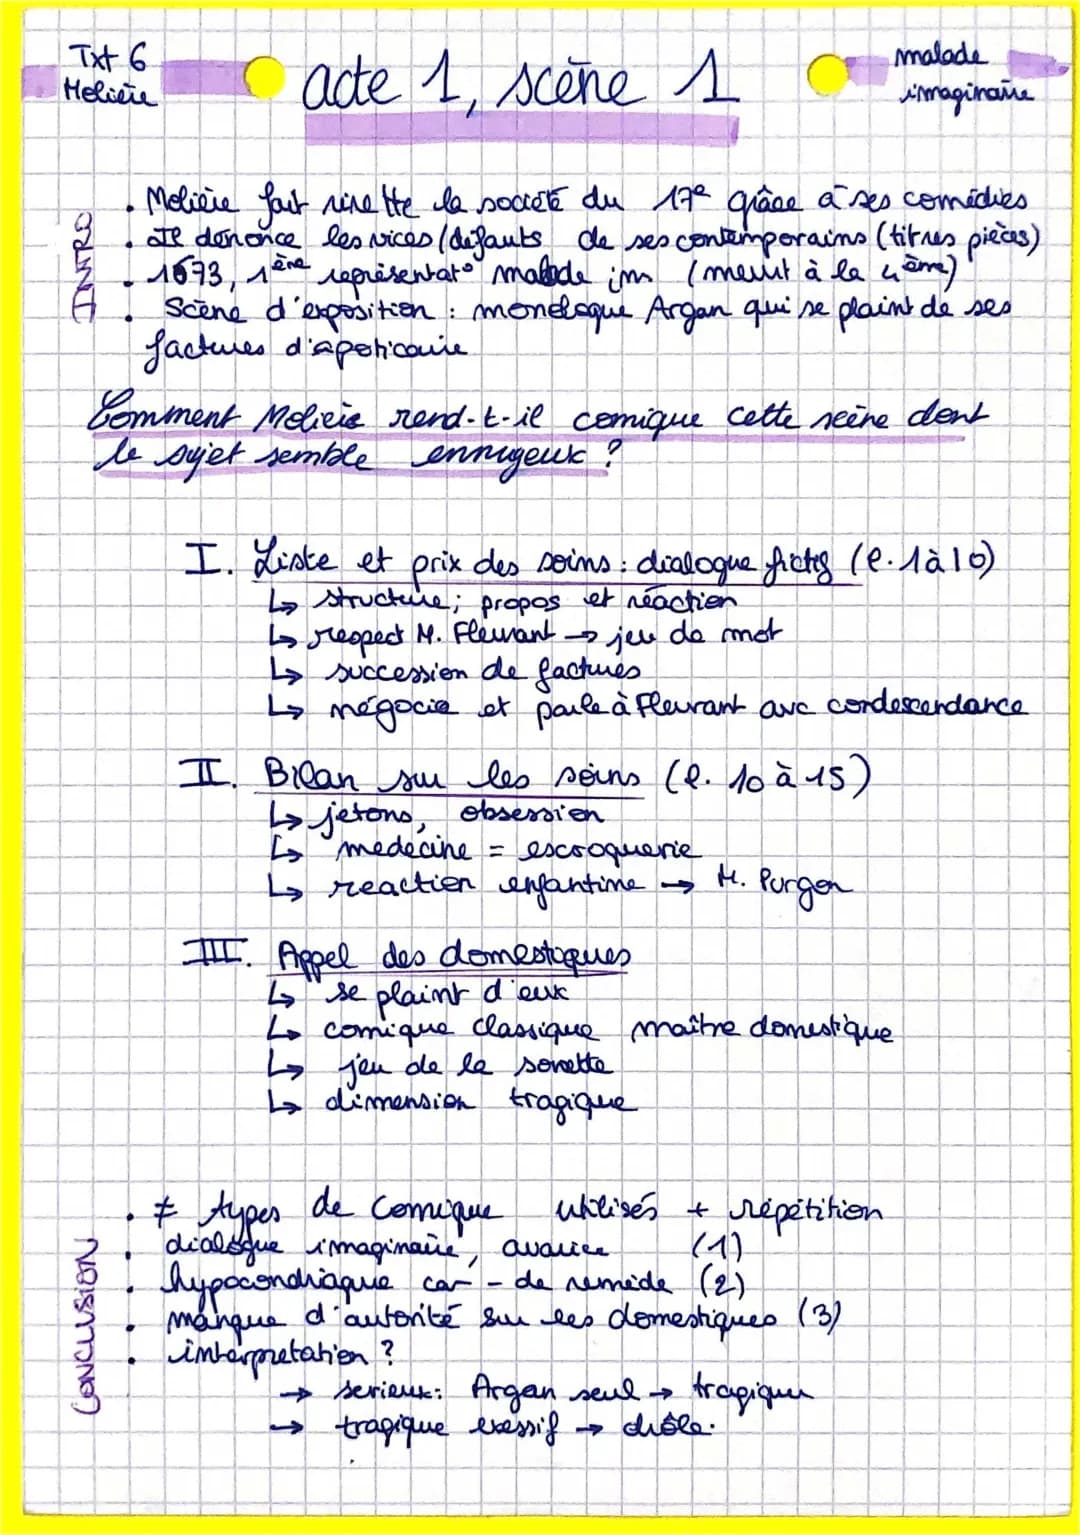 Txt 6
Molière
acte 1, scène 1
malade
imaginaire
INTRO
. Molière fait rire tte la société du 17e grâce à ses comédies
. Il dénonce les vices/défauts de ses contemporains (titres pièces)
. 1673, 1ère représentat° malade im (meurt à la 4ème)
. Scène d'exposition : monologue Argan qui se plaint de ses
factures d'apoticaire
Comment Molière rend-t-il comique cette scène dont
le sujet semble ennuyeux ?
I. Liste et prix des soins : dialogue fictif (l. 1 à 10)
↳ structure ; propos et réaction
↳ respect M. Fleurant → jeu de mot
↳ succession de factures
↳ négocie et parle à Fleurant avc condescendance
II. Bilan sur les soins (l. 10 à 15)
↳ jetons, obsession
↳ medecine = escroquerie
↳ reaction enfantine → M. Purgon
III. Appel des domestiques
↳ se plaint d'eux
↳ comique classique maître domestique
↳ jeu de la sonette
↳ dimension tragique
CONCLUSION
. ≠ types de comique utilisés + répétition
. dialogue imaginaire, avarice (1)
. hypocondriaque car - de remède (2)
. manque d'autorité sur les domestiques (3)
. interpretation ?
→ serieux : Argan seul → tragique
→ tragique exessif → drôle.